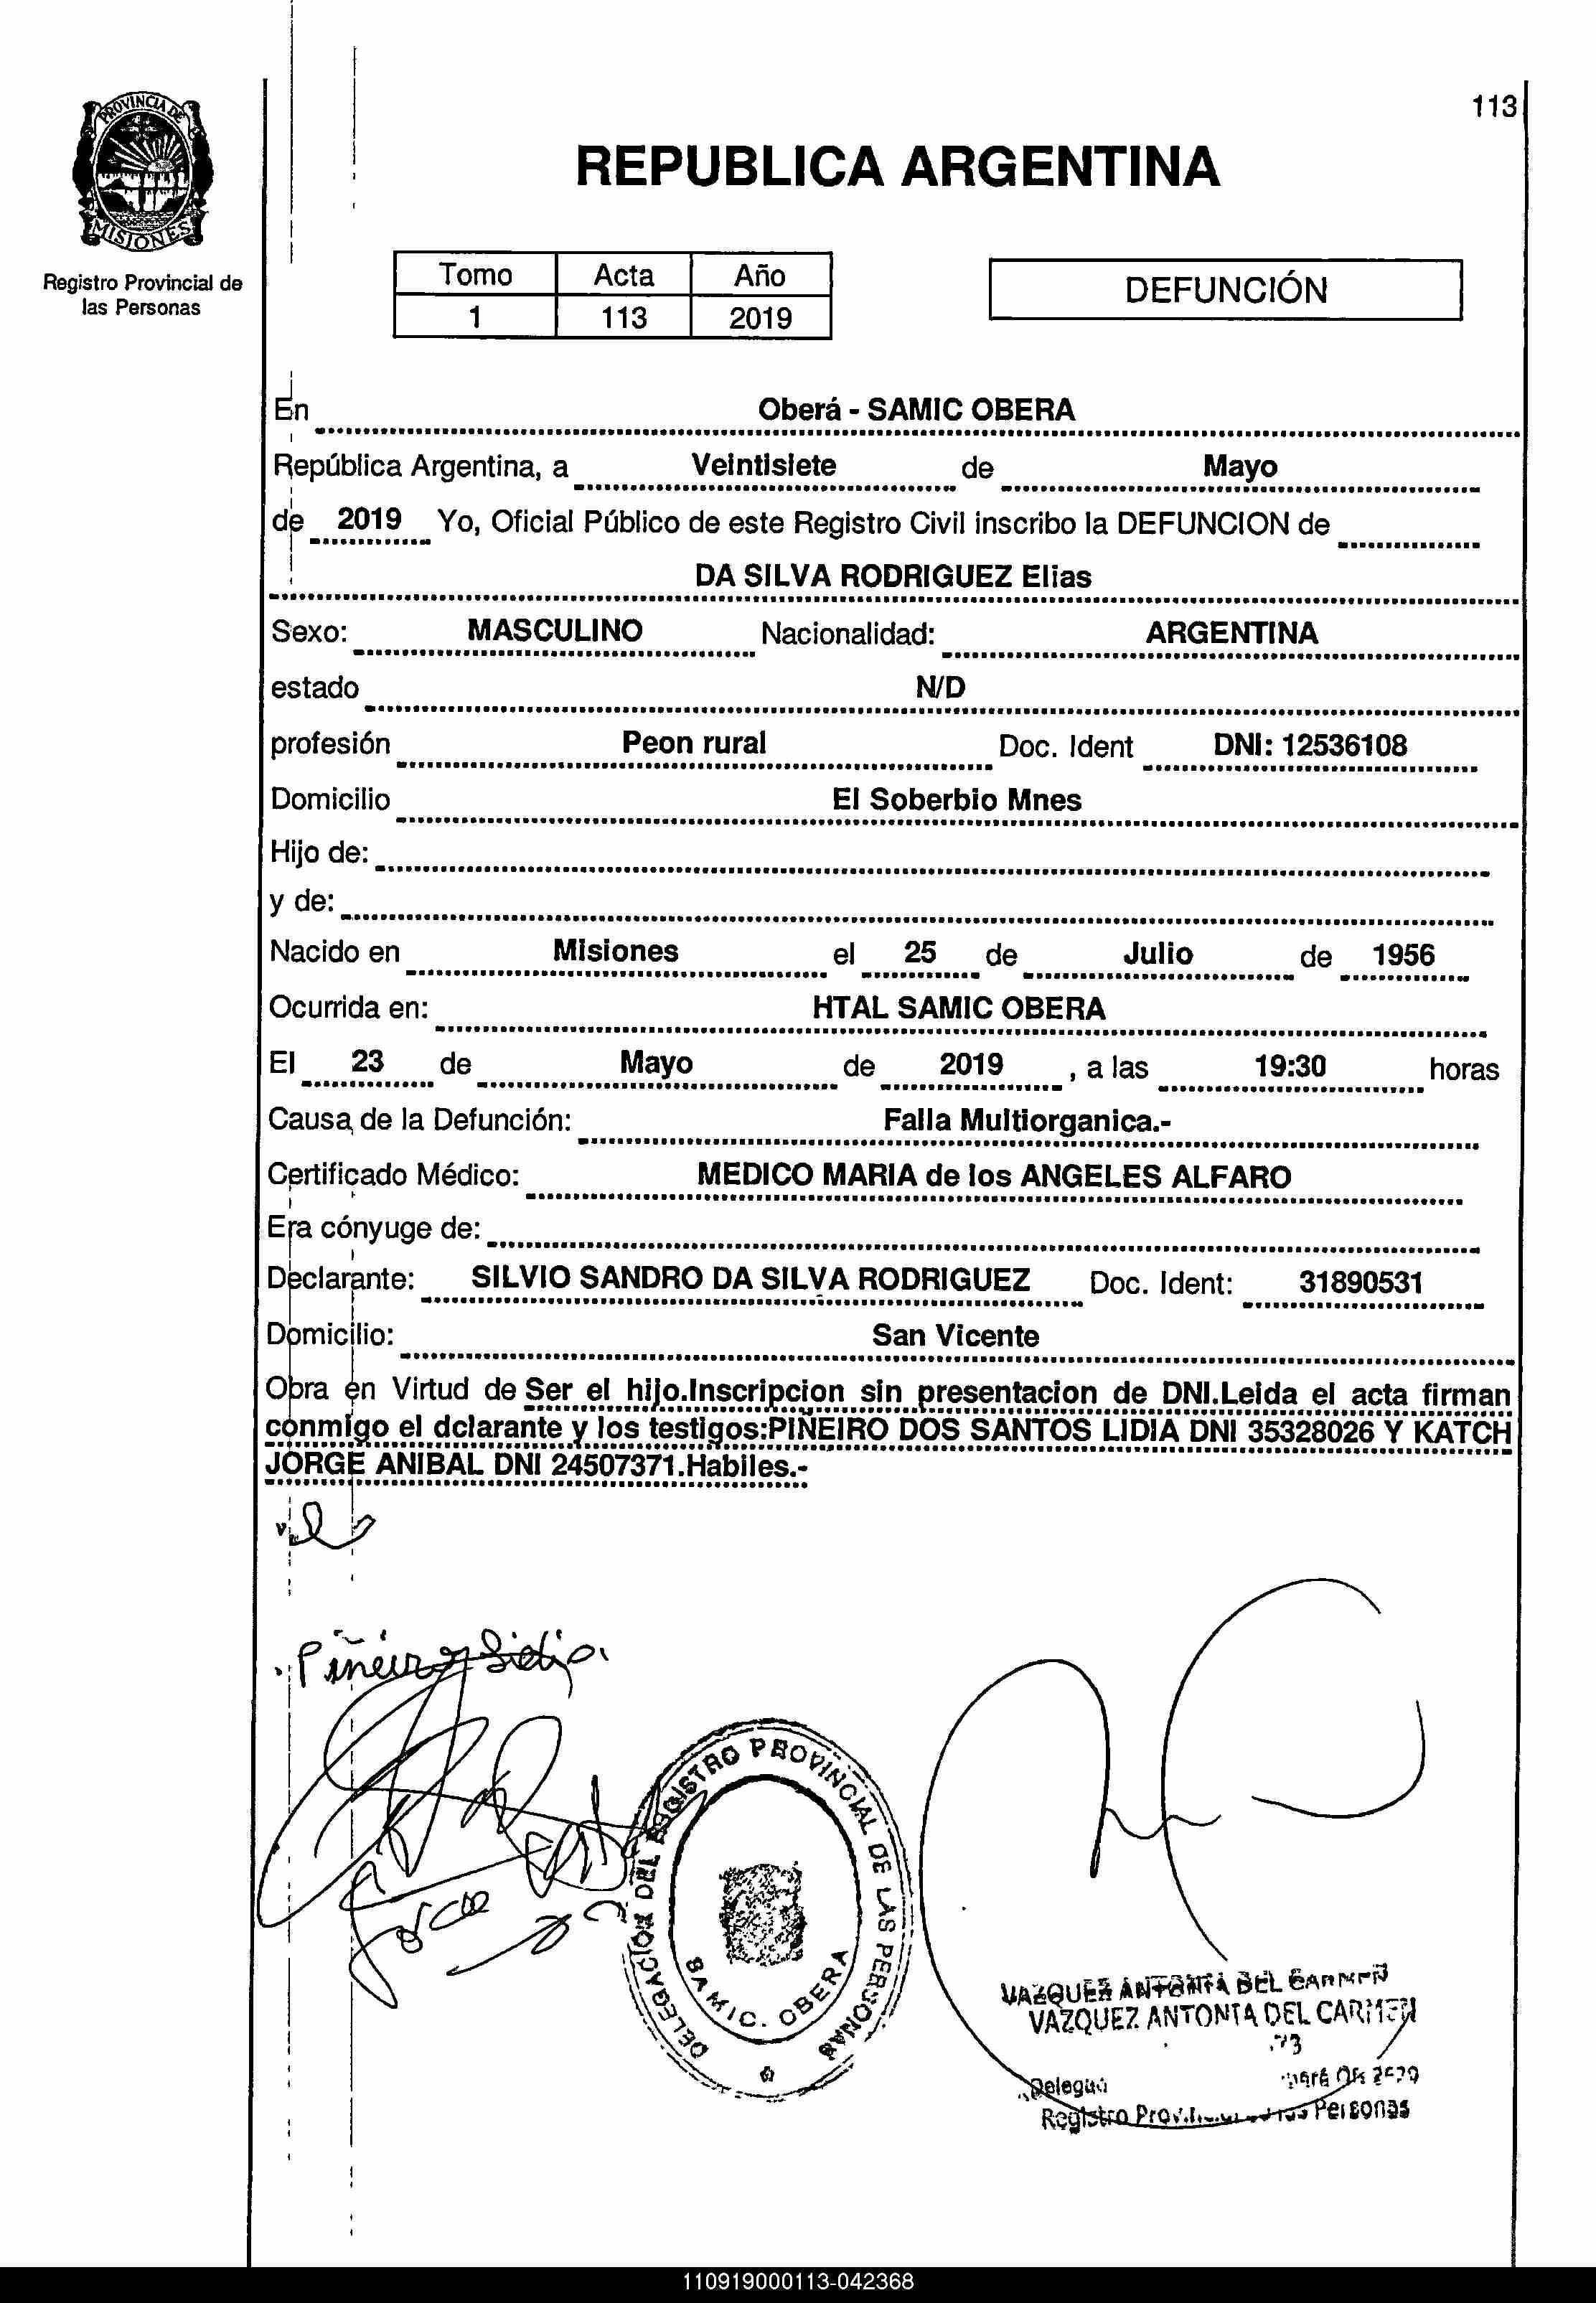 PROVINCIA DE
MISIONES
Registro Provincial de
las Personas
113
REPUBLICA ARGENTINA
Tomo Acta Año
1 113 2019
DEFUNCIÓN
En Oberá - SAMIC OBERA
República Argentina, a Veintisiete de Mayo
de 2019 Yo, Oficial Público de este Registro Civil inscribo la DEFUNCION de
DA SILVA RODRIGUEZ Elias
Sexo: MASCULINO Nacionalidad: ARGENTINA
estado N/D
profesión Peon rural Doc. Ident DNI: 12536108
Domicilio El Soberbio Mnes
Hijo de:
y de:
Nacido en Misiones el 25 de Julio de 1956
Ocurrida en: HTAL SAMIC OBERA
El 23 de Mayo de 2019 , a las 19:30 horas
Causa de la Defunción: Falla Multiorganica.-
Certificado Médico: MEDICO MARIA de los ANGELES ALFARO
Era cónyuge de:
Declarante: SILVIO SANDRO DA SILVA RODRIGUEZ Doc. Ident: 31890531
Domicilio: San Vicente
Obra en Virtud de Ser el hijo.Inscripcion sin presentacion de DNI.Leida el acta firman
conmigo el dclarante y los testigos:PIÑEIRO DOS SANTOS LIDIA DNI 35328026 Y KATCH
JORGE ANIBAL DNI 24507371.Habiles.-
Piñeiro Lidia
Jorge
DELEGACION DEL REGISTRO PROVINCIAL DE LAS PERSONAS
SAMIC. OBERA
VAZQUEZ ANTONIA DEL CARMEN
VAZQUEZ ANTONIA DEL CARMEN
Registro Personas
110919000113-042368